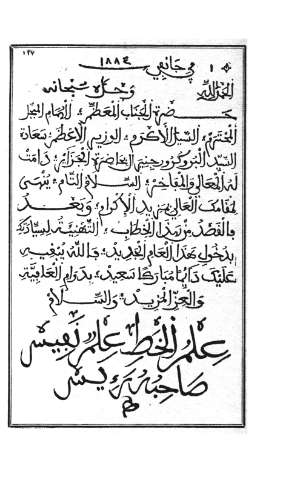 ١٣٧
١ في جانفي ١٨٨٤
الحمد لله وحده سبحانه
حضرة الجناب المعظم، الإمام المبجل
المحترم، السيد الأكرم، الوزير الأعظم، سعادة
السيد
له المعالي والمفاخر، السلام التام، ننهى
لمقامكم العالي بمزيد الإكرام، وبعد
فالقصد من هذا الخطاب، التهنئة لسيادتكم
بدخول هذا العام الجديد، فالله يبقيه
عليك دايما مباركا سعيد، بدوام العافية
والعز المزيد، والسلام
علم الخط علم نفيس
صاحبه